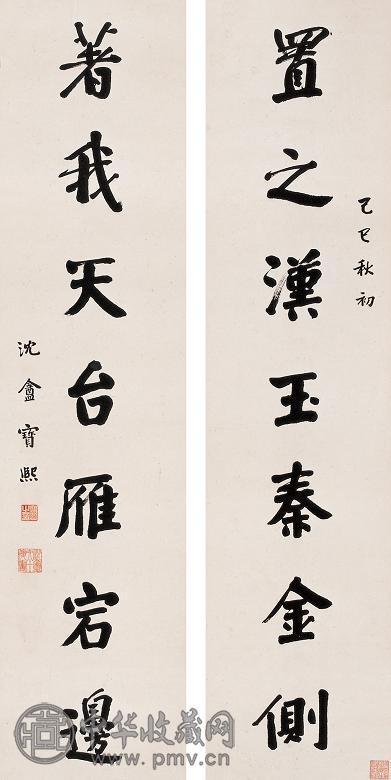 己巳秋初
置之漢玉秦金側
著我天台雁宕邊
沈盦寶熙
中华收藏网
www.pmv.cn